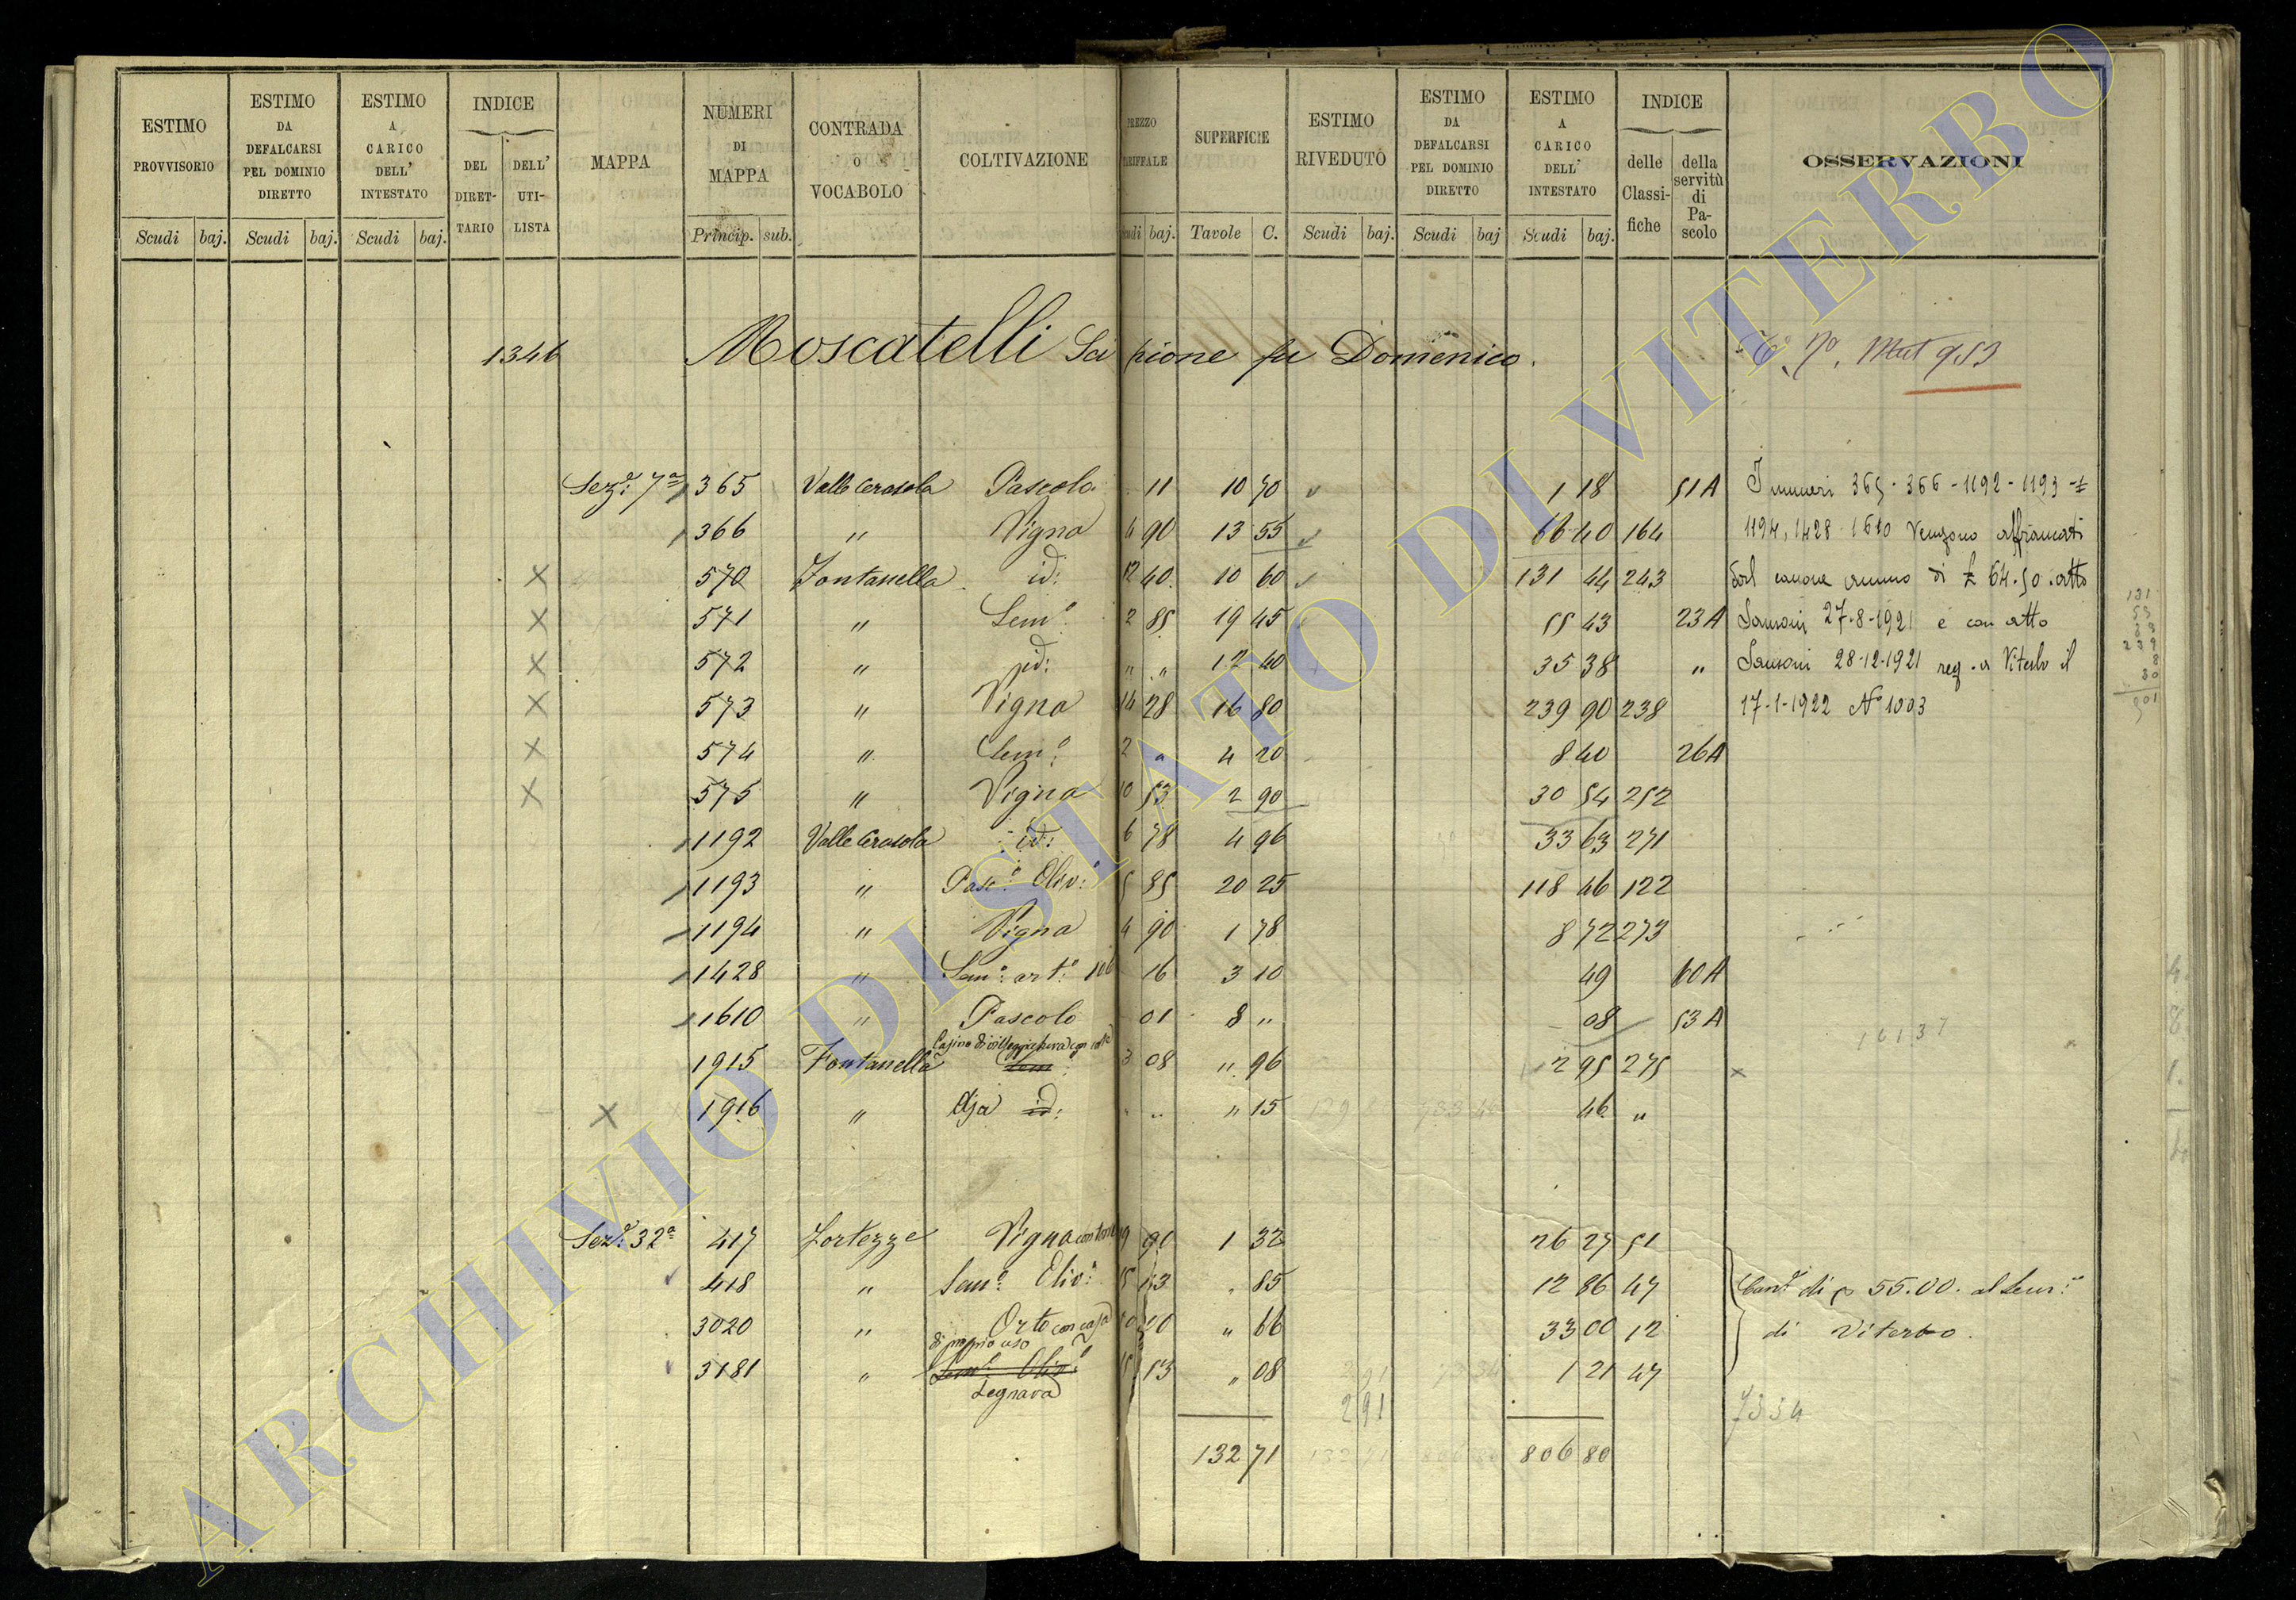 ESTIMO PROVVISORIO | ESTIMO DA DEFALCARSI PEL DOMINIO DIRETTO | ESTIMO A CARICO DELL' INTESTATO | INDICE | MAPPA | NUMERI DI MAPPA | CONTRADA O VOCABOLO | COLTIVAZIONE | PREZZO | SUPERFICIE | ESTIMO RIVEDUTO | ESTIMO DA DEFALCARSI PEL DOMINIO DIRETTO | ESTIMO A CARICO DELL' INTESTATO | INDICE | OSSERVAZIONI
DEL DIRETTARIO | DELL' UTILISTA | delle Classifiche | della servitù di Pascolo
Scudi baj. | Scudi baj. | Scudi baj. | Princip. sub. | baj. | Tavole C. | Scudi baj. | Scudi baj | Scudi baj.
1346 Moscatelli Scipione fu Domenico.
Sez: 7a 365 Valle Cerasola Pascolo 11 10 70 1 18 51A
366 " Vigna 4 90 13 55 66 40 164
570 Fontanella id: 12 40 10 60 131 44 243
571 " Sem.o 2 85 19 45 55 43 23A
572 " id: " " 12 40 35 38 "
573 " Vigna 14 28 16 80 239 90 238
574 " Sem.o 2 " 4 20 8 40 26A
575 " Vigna 10 53 2 90 30 54 252
1192 Valle Cerasola id: 6 78 4 96 33 63 271
1193 " Pasc.o Oliv: 5 85 20 25 118 46 122
1194 " Vigna 4 90 1 78 8 72 273
1428 " Sem.o art.o 106 16 3 10 49 60A
1610 " Pascolo 01 8 " 08 53A
Casino di villeggiatura con
1915 Fontanella 3 08 " 96 2 95 275
1916 " Aja id: " " " 15 46 "
Sez: 32a 417 Fortezze Vigna 19 90 1 32 26 27 51
418 " Sem.o Oliv: 15 13 " 85 12 86 47
3020 " Orto con casa " 66 33 00 12
di proprio uso
3181 " Sem.o Oliv.o 15 13 " 08 1 21 47
Legnara
291
132 71 806 80
Mut 953
I numeri 365 - 366 - 1192 - 1193 -
1194, 1428 - 1610 vengono affrancati
dal canone annuo di £ 64.50 . atto
Sansoni 27-8-1921 e con atto
Sansoni 28-12-1921 reg. a Viterbo il
17-1-1922 No 1003
12137
di 55.00. al Sem:
di Viterbo.
7334
ARCHIVIO DI STATO DI VITERBO